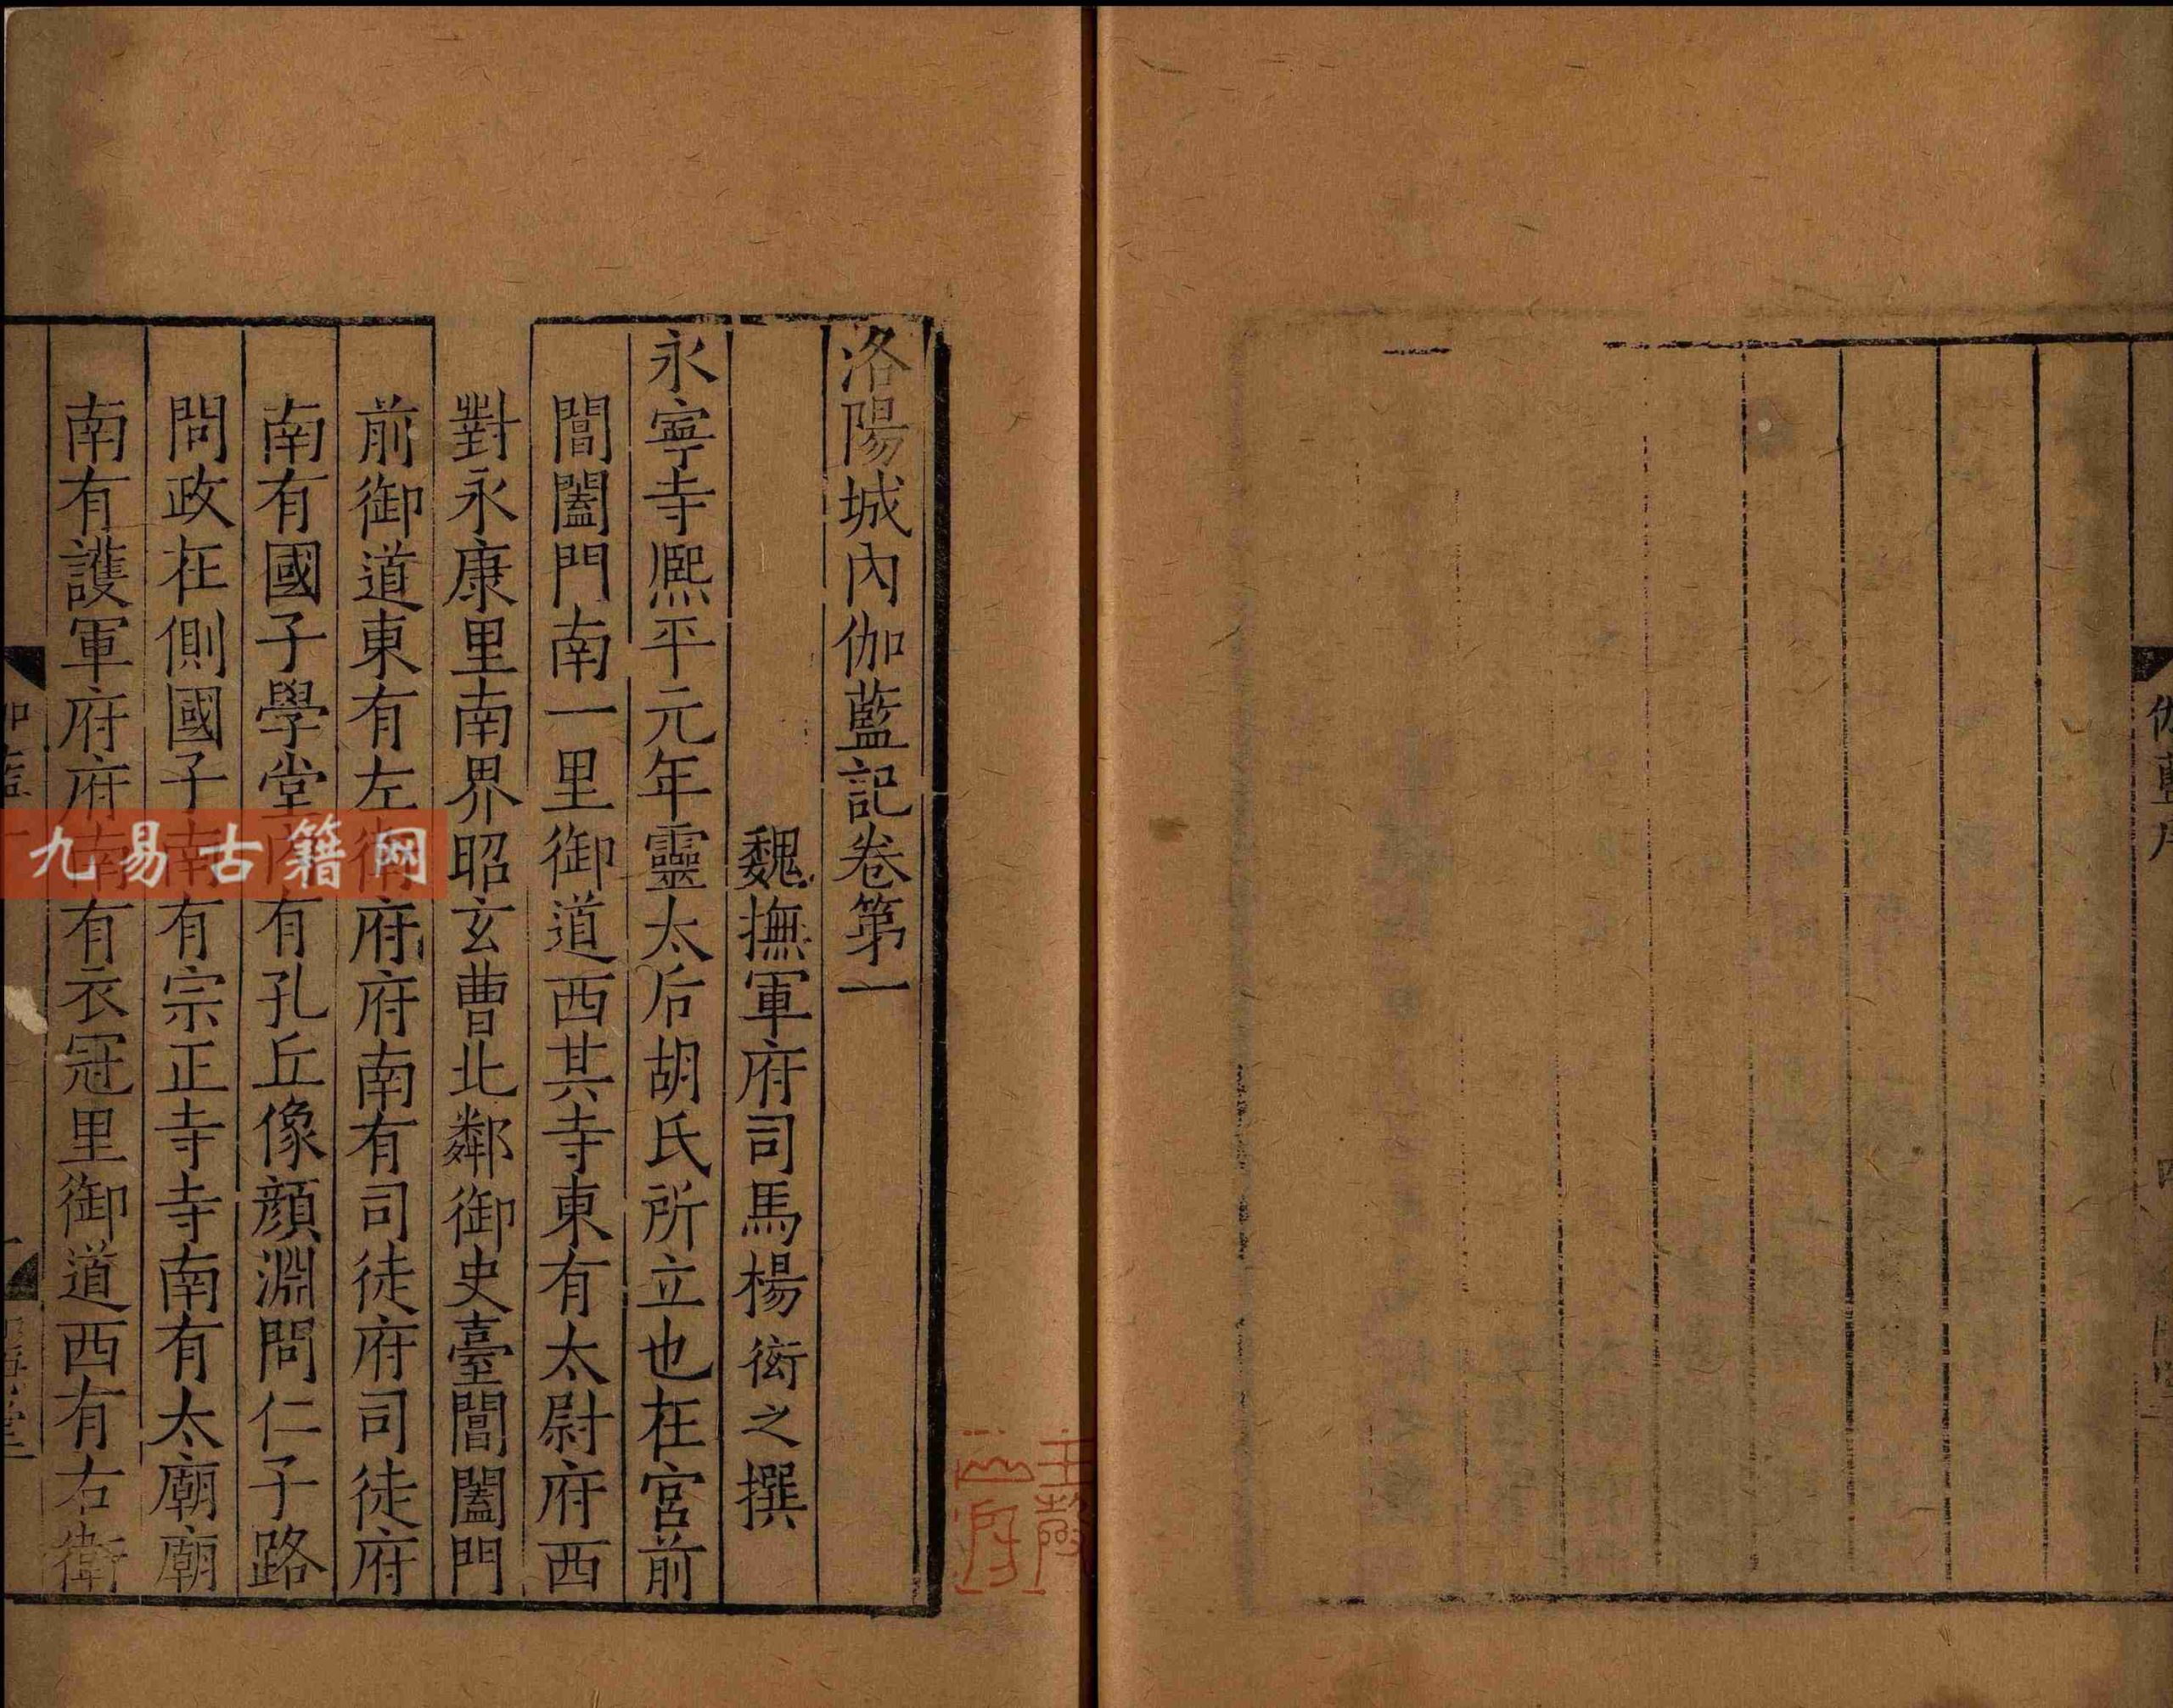 洛陽城內伽藍記卷第一
魏撫軍府司馬楊衒之撰
永寧寺熈平元年靈太后胡氏所立也在宮前
閶闔門南一里御道西其寺東有太尉府西
對永康里南界昭玄曹北鄰御史臺閶闔門
前御道東有左衛府府南有司徒府司徒府
南有國子學堂內有孔丘像顔淵問仁子路
問政在側國子南有宗正寺寺南有太廟廟
南有護軍府府南有衣冠里御道西有右衛
九易古籍网